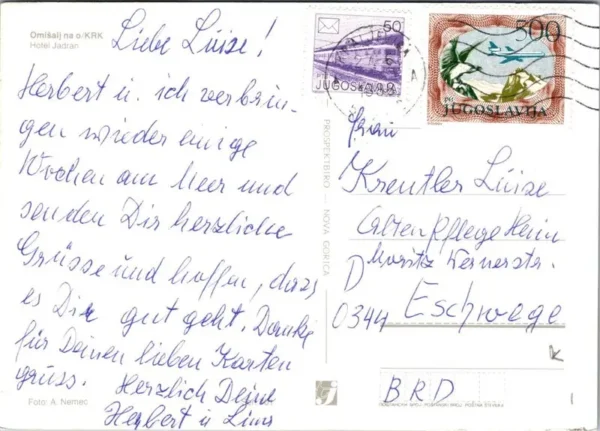 Omišalj na o/KRK
Hotel Jadran
Liebe Luise!
Herbert u. ich verbrin-
gen wieder einige
Wochen am Meer und
senden Dir herzliche
Grüsse und hoffen, dass
es Dir gut geht. Danke
für Deinen lieben Karten
gruss. Herzlich Deine
Herbert u.
Foto: A. Nemec
PROSPEKTBIRO - NOVA GORICA
50
JUGOSLAVIJA
500
JUGOSLAVIJA
Frau
Kreutler Luise
Altenpflege Heim
Moritz Wernerstr.
D
0344 Eschwege
BRD